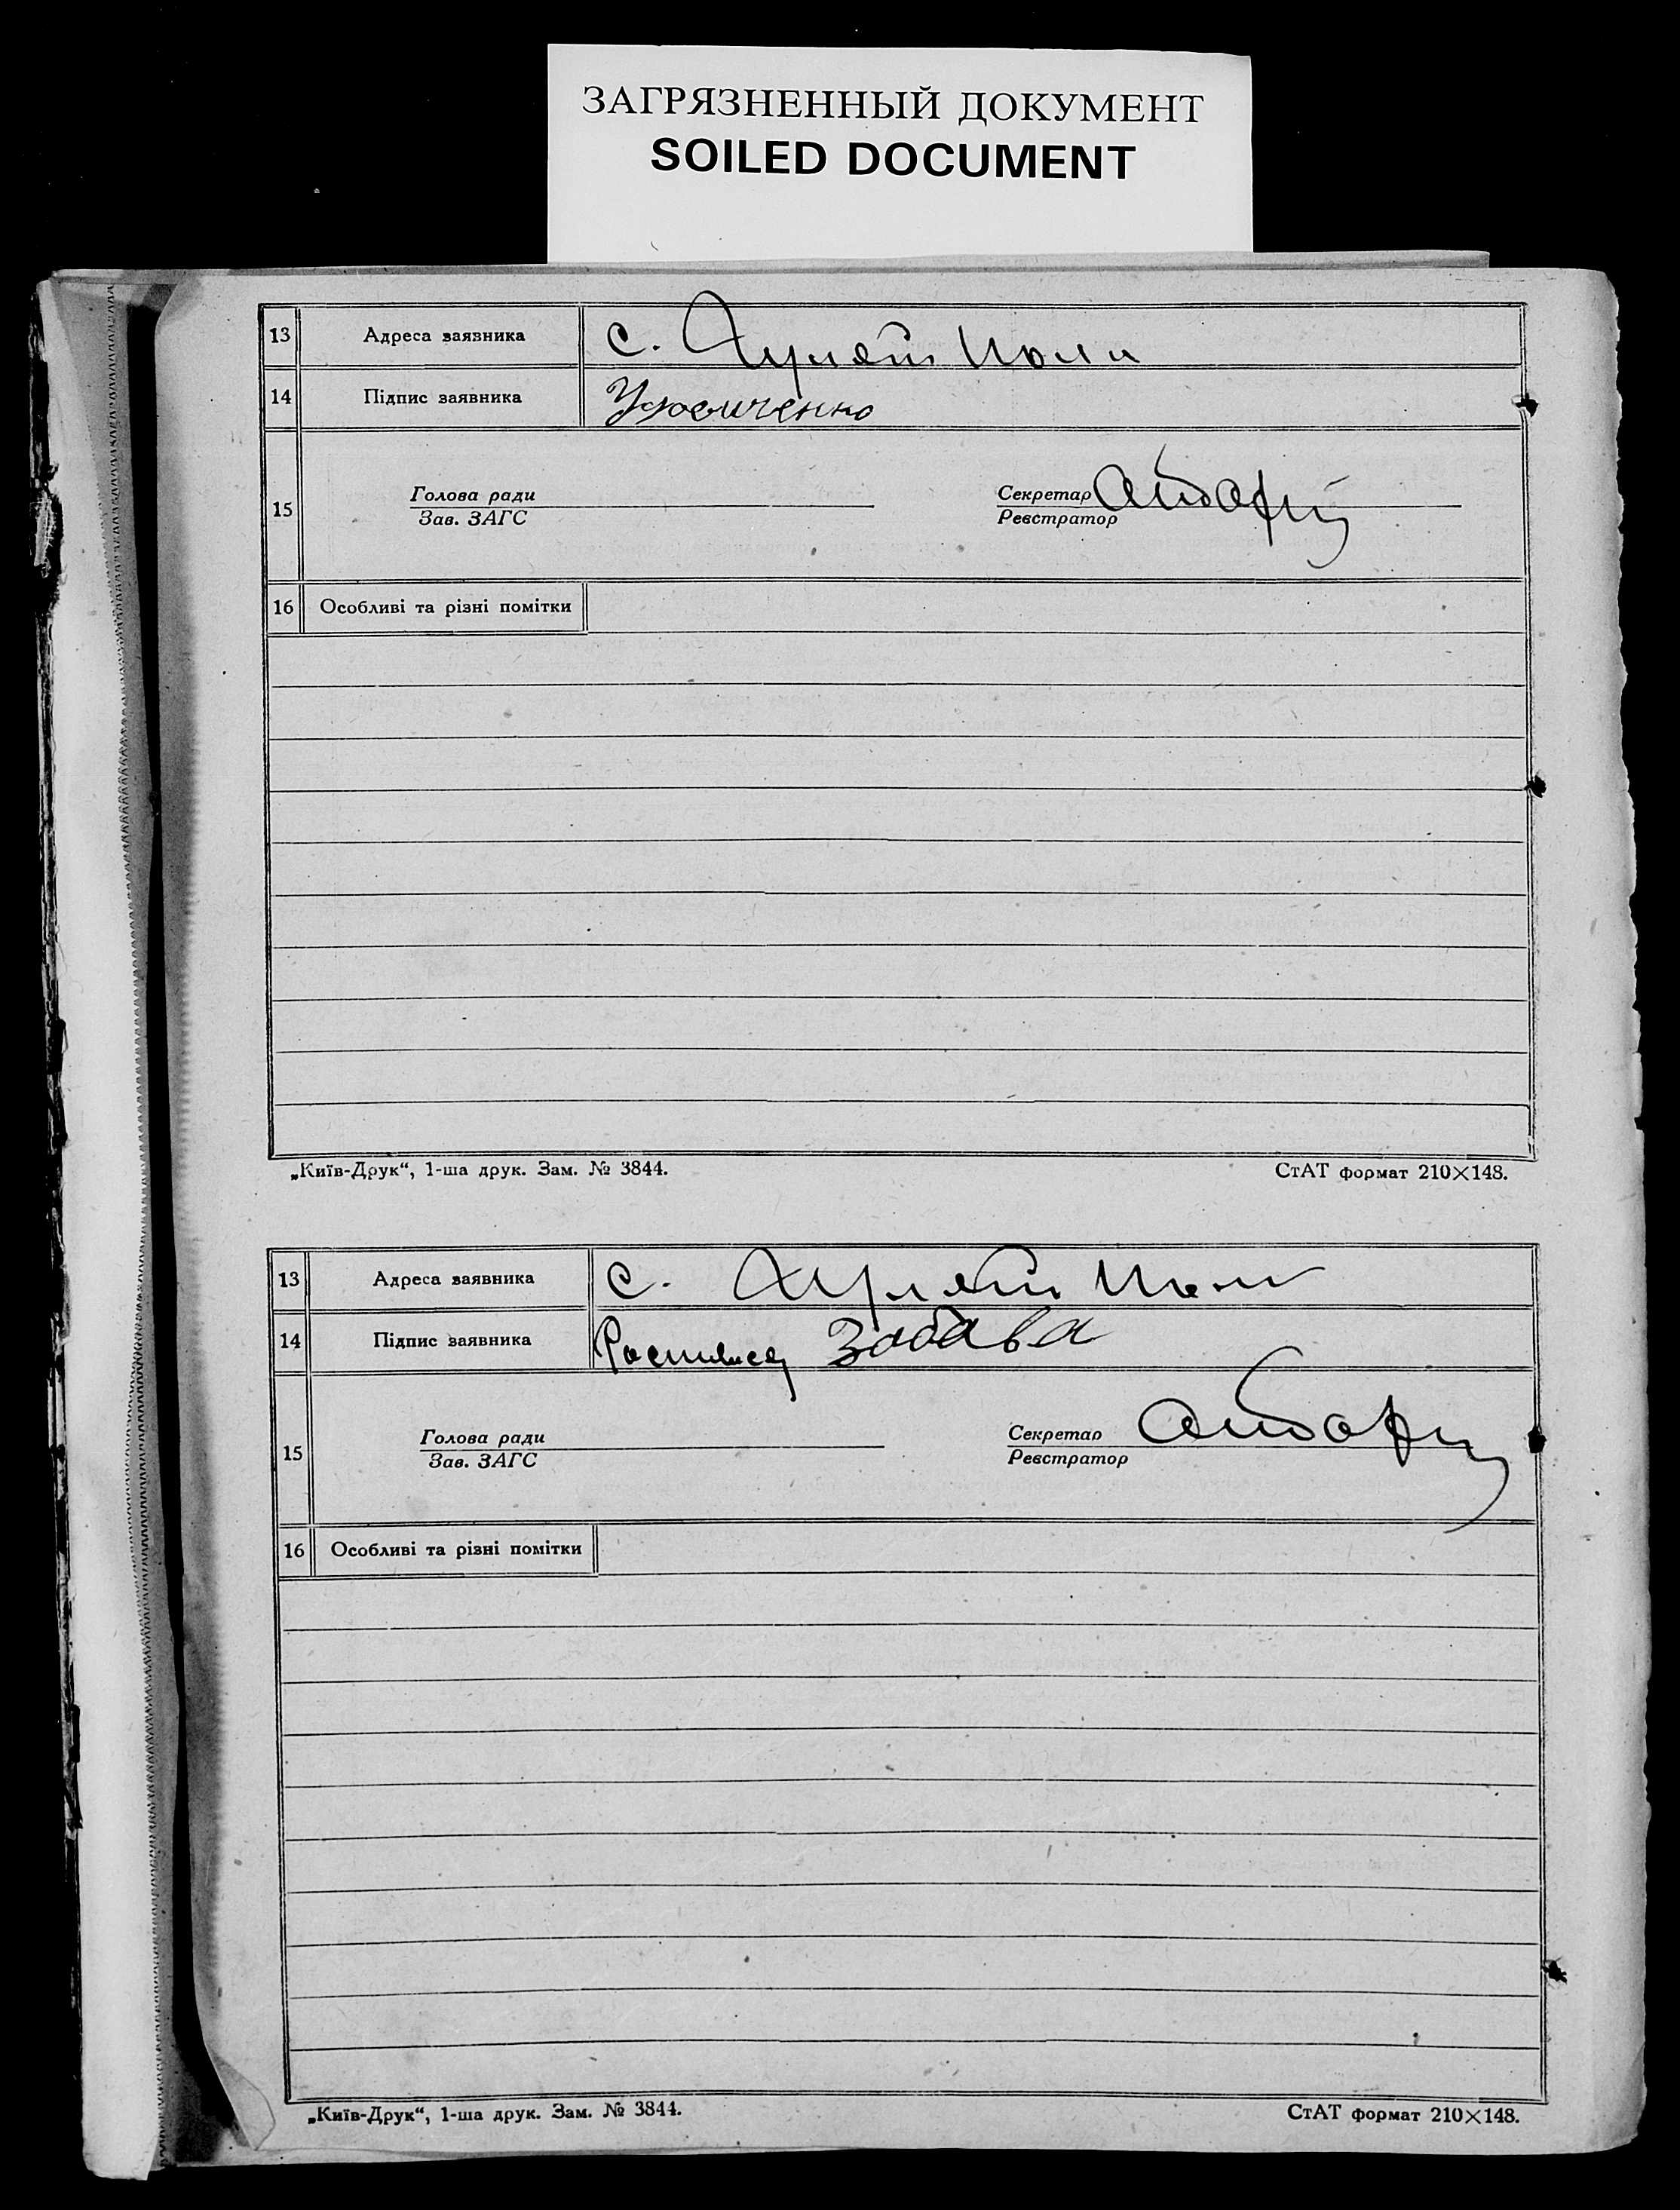 ЗАГРЯЗНЕННЫЙ ДОКУМЕНТ
SOILED DOCUMENT
13 Адреса заявника с. Гуляй Поли
14 Підпис заявника
15 Голова ради
Зав. ЗАГС
Секретар
Реєстратор
16 Особливі та різні помітки
„Київ-Друк“, 1-ша друк. Зам. № 3844.
СтАТ формат 210×148.
13 Адреса заявника с. Гуляй Поли
14 Підпис заявника Забава
15 Голова ради
Зав. ЗАГС
Секретар
Реєстратор
16 Особливі та різні помітки
„Київ-Друк“, 1-ша друк. Зам. № 3844.
СтАТ формат 210×148.